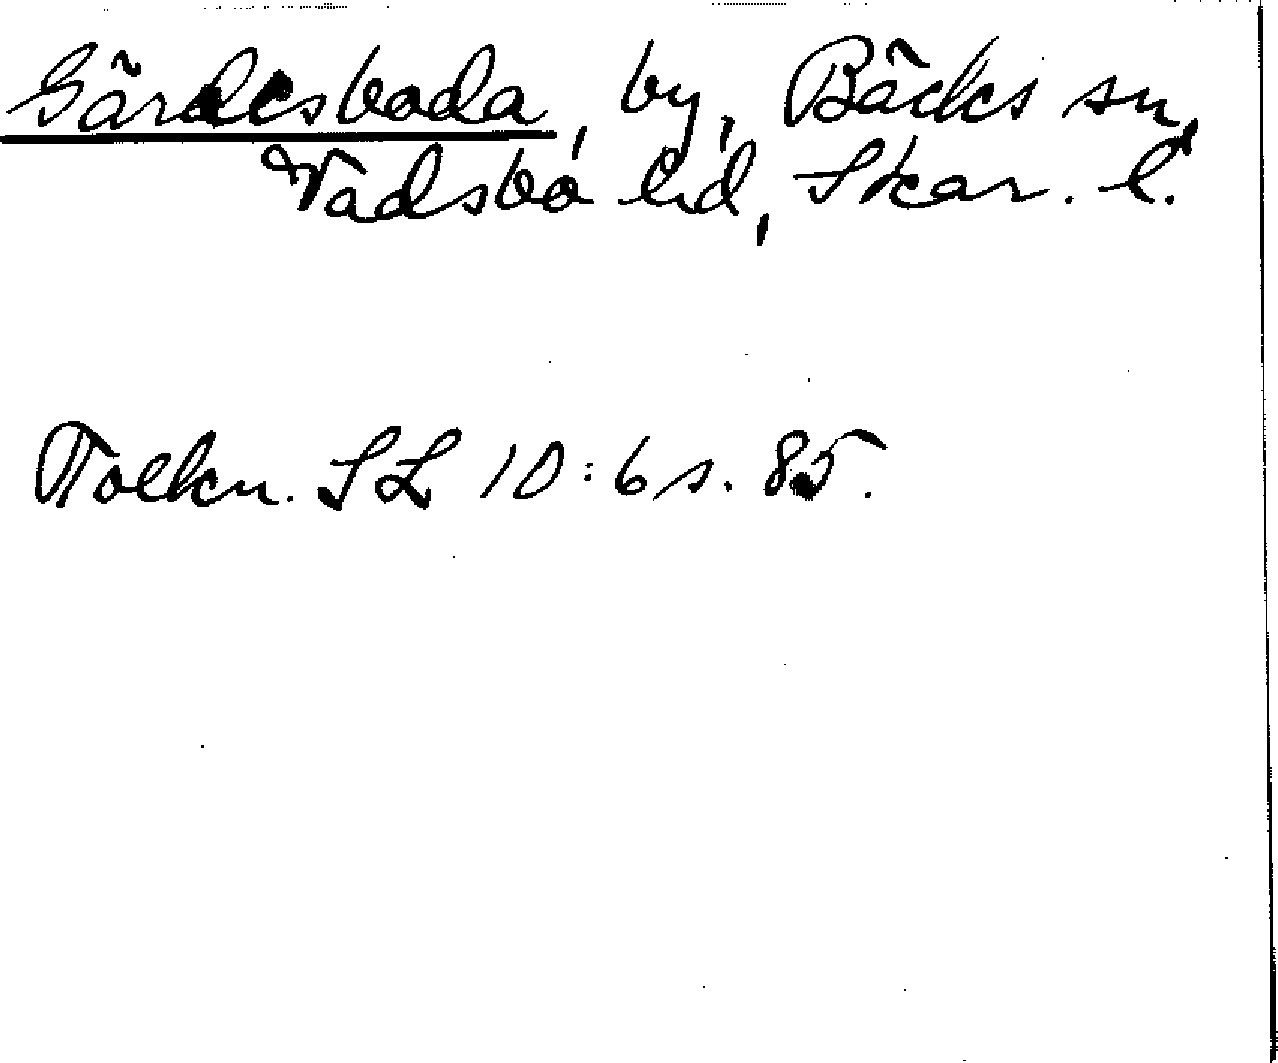 Gärdesboda, by, Bäcks sn,
Vadsbo hd, Skar. l.
Tolkn. SL 10:6 s. 85.